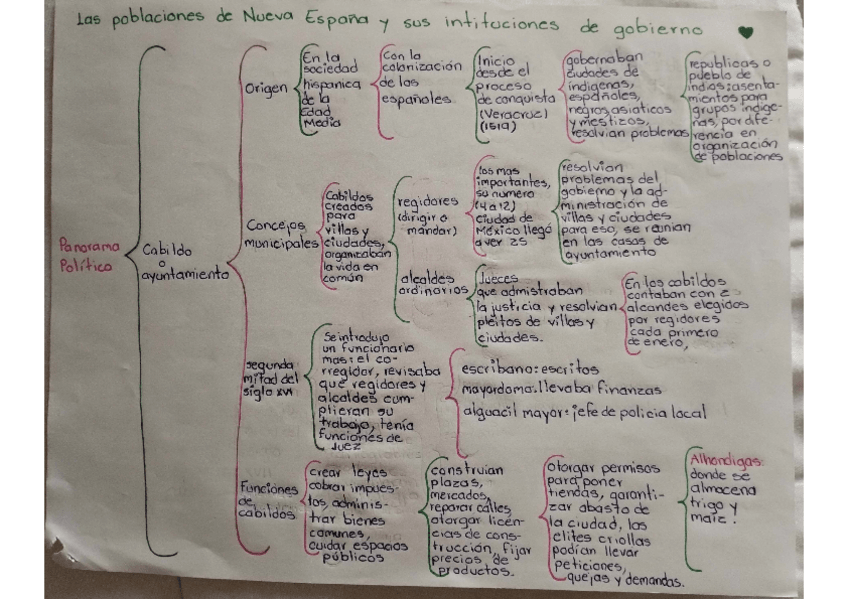 Las poblaciones de Nueva España y sus intituciones de gobierno
Panorama
Político
Cabildo
o
ayuntamiento
Origen
En la
sociedad
hispanica
de la
Edad
Media
Con la
colonización
de los
españoles
Inicio
desde el
proceso
de conquista
(Veracruz)
(1519)
gobernaban
ciudades de
indigenas,
españoles,
negros,asiaticos
y mestizos,
resolvian problemas
republicas o
pueblo de
indios:asenta-
mientos para
grupos indige-
nas, por dife-
rencia en
organización
de poblaciones
Concejos
municipales
Cabildos
creados
para
villas y
ciudades,
organizaban
la vida en
común
regidores
(dirigir o
mandar)
los mas
importantes,
su numero
(4 a 12)
ciudad de
México llegó
a ver 25
resolvian
problemas del
gobierno y la ad-
ministración de
villas y ciudades
para eso, se reunian
en las casas de
ayuntamiento
alcaldes
ordinarios
Jueces
que admistraban
la justicia y resolvian
pleitos de villas y
ciudades.
En los cabildos
contaban con 2
alcandes elegidos
por regidores
cada primero
de enero,
segunda
mitad del
siglo XVI
Se introdujo
un funcionario
mas: el co-
rregidor, revisaba
que regidores y
alcaldes cum-
plieran su
trabajo, tenía
funciones de
Juez
escribano: escritos
mayordomo: llevaba finanzas
alguacil mayor: jefe de policia local
Funciones
de
cabildos
crear leyes
cobrar impues-
tos, adminis-
trar bienes
comunes,
cuidar espacios
públicos
construian
plazas,
mercados,
reparar calles,
otorgar licen-
cias de cons-
trucción, fijar
precios de
productos.
otorgar permisos
para poner
tiendas, garanti-
zar abasto de
la ciudad, las
elites criollas
podian llevar
peticiones,
quejas y demandas.
Alhondigas:
donde se
almacena
trigo y
maiz.